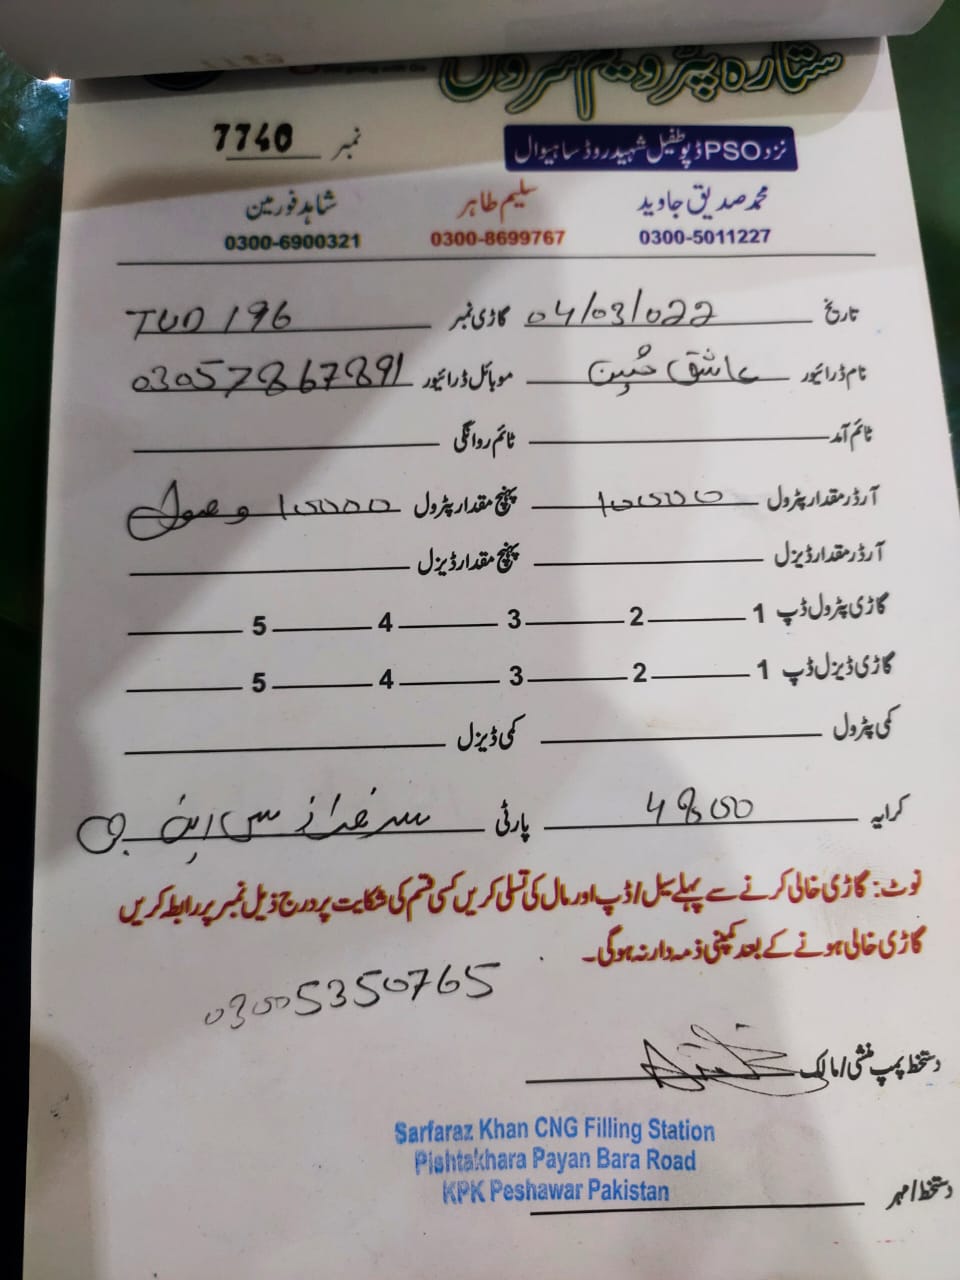 ستارہ پٹرولیم سروس
نزد PSO ڈپو طفیل شہید روڈ ساہیوال
نمبر 7740
محمد صدیق جاوید سلیم طاہر شاہد فورمین
0300-5011227 0300-8699767 0300-6900321
تاریخ 04/03/022 گاڑی نمبر TUD 196
نام ڈرائیور عاشق حسین موبائل ڈرائیور 03057867891
ٹائم آمد ٹائم روانگی
آرڈر مقدار پٹرول 10000 پہنچ مقدار پٹرول 10000 وصول
آرڈر مقدار ڈیزل پہنچ مقدار ڈیزل
گاڑی پٹرول ڈپ 1 2 3 4 5
گاڑی ڈیزل ڈپ 1 2 3 4 5
کمی پٹرول کمی ڈیزل
کرایہ 4800 پارٹی سرفراز سی این جی
نوٹ: گاڑی خالی کرنے سے پہلے سیل/ڈپ اور مال کی تسلی کریں کسی قسم کی شکایت پر درج ذیل نمبر پر رابطہ کریں
گاڑی خالی ہونے کے بعد کمپنی ذمہ دار نہ ہوگی۔
03005350765
دستخط پمپ منشی/مالک
Sarfaraz Khan CNG Filling Station
Pishtakhara Payan Bara Road
KPK Peshawar Pakistan
دستخط/مہر